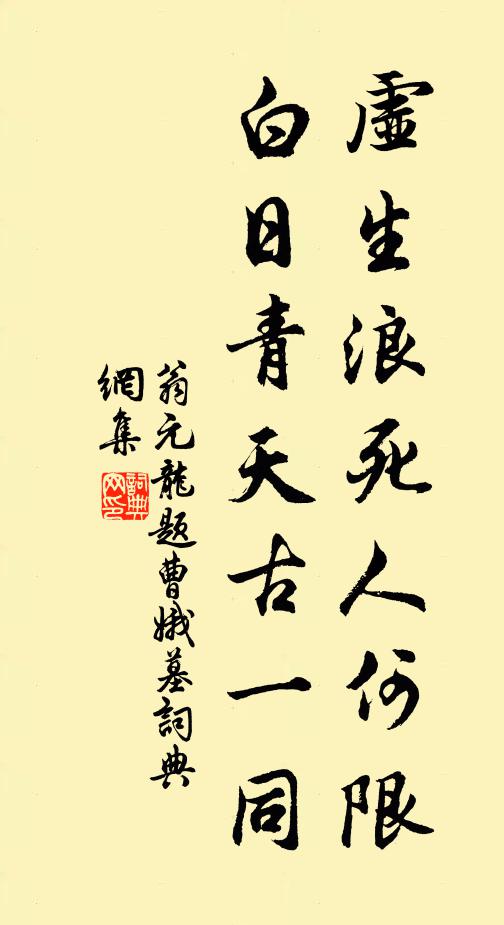 虛生浪死人何限
白日青天古一同
翁元龍題曹娥墓詞典
網集
詞典
网印